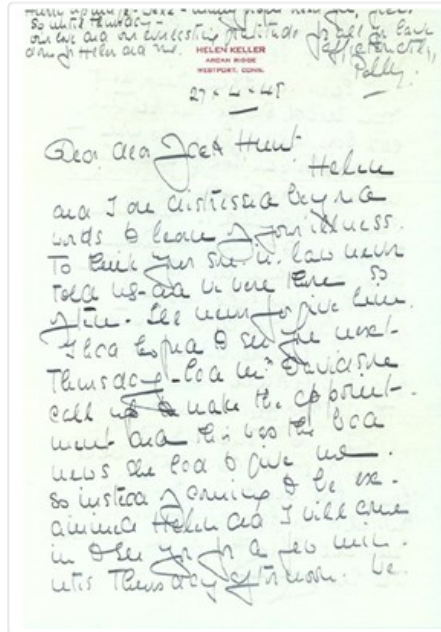 so until Thursday -
our love and our everlasting gratitude for all you have
done for Helen and me. affectionately,
Polly.
HELEN KELLER
ARCAN RIDGE
WESTPORT, CONN.
27 x 4 x 48
Dear dear Hunt
Helen
and I are distressed beyond
words to learn of your illness.
To think your son-in-law never
told us - and we were there so
often. I'll never forgive him.
I had hoped to see you next
Thursday - had Mrs Davidson
call to make the appoint-
ment and this was the bad
news she had to give me.
So instead of coming to be ex-
amined Helen and I will come
in to see you for a few min-
utes Thursday afternoon. We